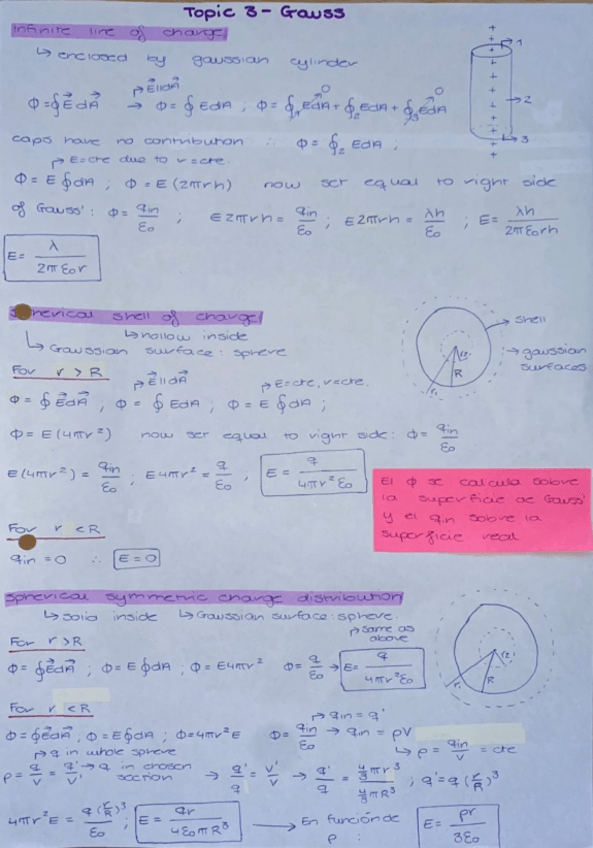 Topic 3 - Gauss
Infinite line of charge
↳ enclosed by gaussian cylinder
Φ = ∮E⃗dA⃗ → (E⃗||dA⃗) Φ = ∮ EdA ; Φ = ∮₁ EdA (→0) + ∮₂ EdA + ∮₃ EdA (→0)
caps have no contribution ∴ Φ = ∮₂ EdA ;
↱ E=cte due to r=cte.
Φ = E ∮dA ; Φ = E (2πrh) now set equal to right side
of Gauss': Φ = qin/ε₀ ; E2πrh = qin/ε₀ ; E2πrh = λh/ε₀ ; E = λh/2πε₀rh
E = λ/2πε₀r
+ + + + + + + + +
1
2
3
Spherical shell of charge
↳ hollow inside
↳ Gaussian surface: sphere
For r > R
↱ E⃗||dA⃗ ↱ E=cte, r=cte.
Φ = ∮ E⃗dA⃗ ; Φ = ∮ EdA ; Φ = E ∮dA ;
Φ = E(4πr²) now set equal to right side: Φ = qin/ε₀
E(4πr²) = qin/ε₀ ; E4πr² = q/ε₀ , E = q/4πr²ε₀
shell
gaussian
surfaces
r₂
R
r₁
El Φ se calcula sobre
la superficie de Gauss
y el qin sobre la
superficie real
For r < R
qin = 0 ∴ E = 0
Spherical symmetric charge distribution
↳ solid inside ↳ Gaussian surface: sphere.
For r > R ↱ same as above
Φ = ∮E⃗dA⃗ ; Φ = E∮dA ; Φ = E4πr² Φ = q/ε₀ → E = q/4πr²ε₀
r₂
R
r₁
For r < R
↱ qin = q'
Φ = ∮E⃗dA⃗ ; Φ = E∮dA ; Φ = 4πr²E Φ = qin/ε₀ → qin = ρV
↳ ρ = qin/V = cte
↱ q in whole sphere
ρ = q/V = q'/V' → q in chosen section → q'/q = V'/V → q'/q = 4/3πr³ / 4/3πR³ ; q' = q(r/R)³
4πr²E = q(r/R)³/ε₀ ; E = qr/4ε₀πR³ → En función de ρ : E = ρr/3ε₀